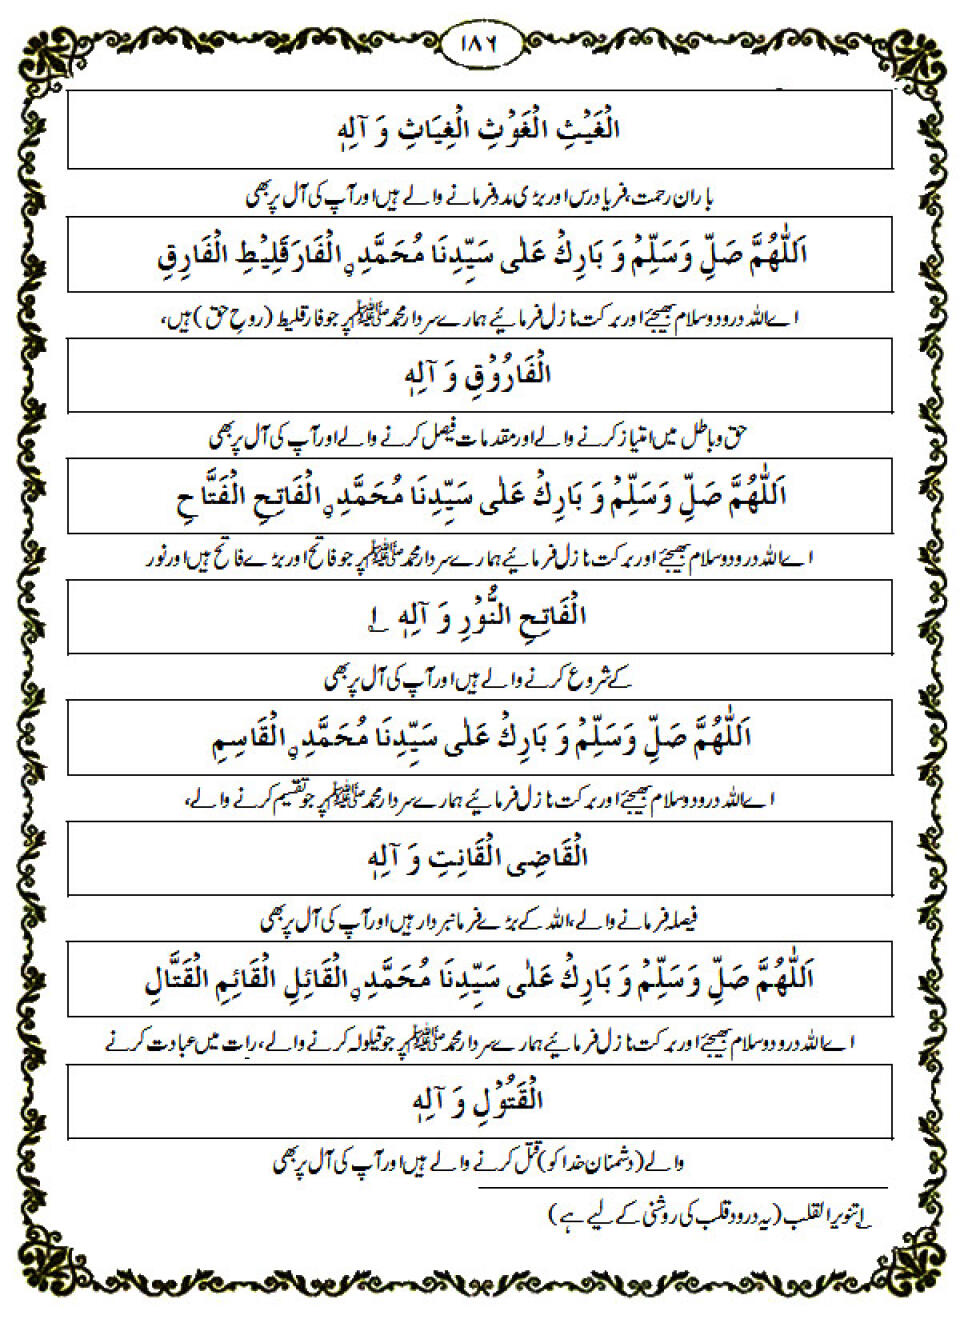 ١٨٦
الْغَيْثِ الْغَوْثِ الْغِيَاثِ وَ آلِهٖ
باران رحمت، فریاد رس اور بڑی مدد فرمانے والے ہیں اور آپ کی آل پر بھی
اَللّٰهُمَّ صَلِّ وَسَلِّمْ وَ بَارِكْ عَلٰى سَيِّدِنَا مُحَمَّدِ ۣالْفَارَقَلِيْطِ الْفَارِقِ
اے اللہ درود و سلام بھیجئے اور برکت نازل فرمائیے ہمارے سردار محمد ﷺ پر جو فارقلیط (روحِ حق) ہیں،
الْفَارُوْقِ وَ آلِهٖ
حق و باطل میں امتیاز کرنے والے اور مقدمات فیصل کرنے والے اور آپ کی آل پر بھی
اَللّٰهُمَّ صَلِّ وَسَلِّمْ وَ بَارِكْ عَلٰى سَيِّدِنَا مُحَمَّدِ ۣالْفَاتِحِ الْفَتَّاحِ
اے اللہ درود و سلام بھیجئے اور برکت نازل فرمائیے ہمارے سردار محمد ﷺ پر جو فاتح اور بڑے فاتح ہیں اور نور
الْفَاتِحِ النُّوْرِ وَ آلِهٖ ١
کے شروع کرنے والے ہیں اور آپ کی آل پر بھی
اَللّٰهُمَّ صَلِّ وَسَلِّمْ وَ بَارِكْ عَلٰى سَيِّدِنَا مُحَمَّدِ ۣالْقَاسِمِ
اے اللہ درود و سلام بھیجئے اور برکت نازل فرمائیے ہمارے سردار محمد ﷺ پر جو تقسیم کرنے والے،
الْقَاضِى الْقَانِتِ وَ آلِهٖ
فیصلہ فرمانے والے، اللہ کے بڑے فرمانبردار ہیں اور آپ کی آل پر بھی
اَللّٰهُمَّ صَلِّ وَسَلِّمْ وَ بَارِكْ عَلٰى سَيِّدِنَا مُحَمَّدِ ۣالْقَائِلِ الْقَائِمِ الْقَتَّالِ
اے اللہ درود و سلام بھیجئے اور برکت نازل فرمائیے ہمارے سردار محمد ﷺ پر جو قیلولہ کرنے والے، رات میں عبادت کرنے
الْقَتُوْلِ وَ آلِهٖ
والے (دشمنان خدا کو) قتل کرنے والے ہیں اور آپ کی آل پر بھی
١ تنویر القلب (یہ درود قلب کی روشنی کے لیے ہے)